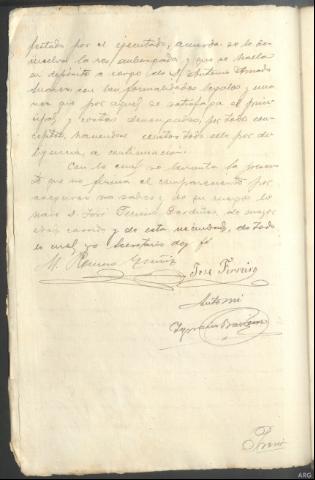 festado por el ejecutado, acuerda se le de
vuelva la res embargada y que se halla
en depósito a cargo de D. Antonio
con las formalidades legales y una
vez que por aquel se satisfaga el princi
pal y costas demandadas, por todo con
cepto, haciendose constar todo ello por di
ligencia a continuación.
Con lo cual se levanta la presen
te que no firma el compareciente por
asegurar no saber y de su ruego lo
hace D. José Ferreiro de mayor
edad casado y de esta vecindad, de todo
lo cual, yo Secretario doy fe
M. Romero
José Ferreiro
Antemi
Ignacio